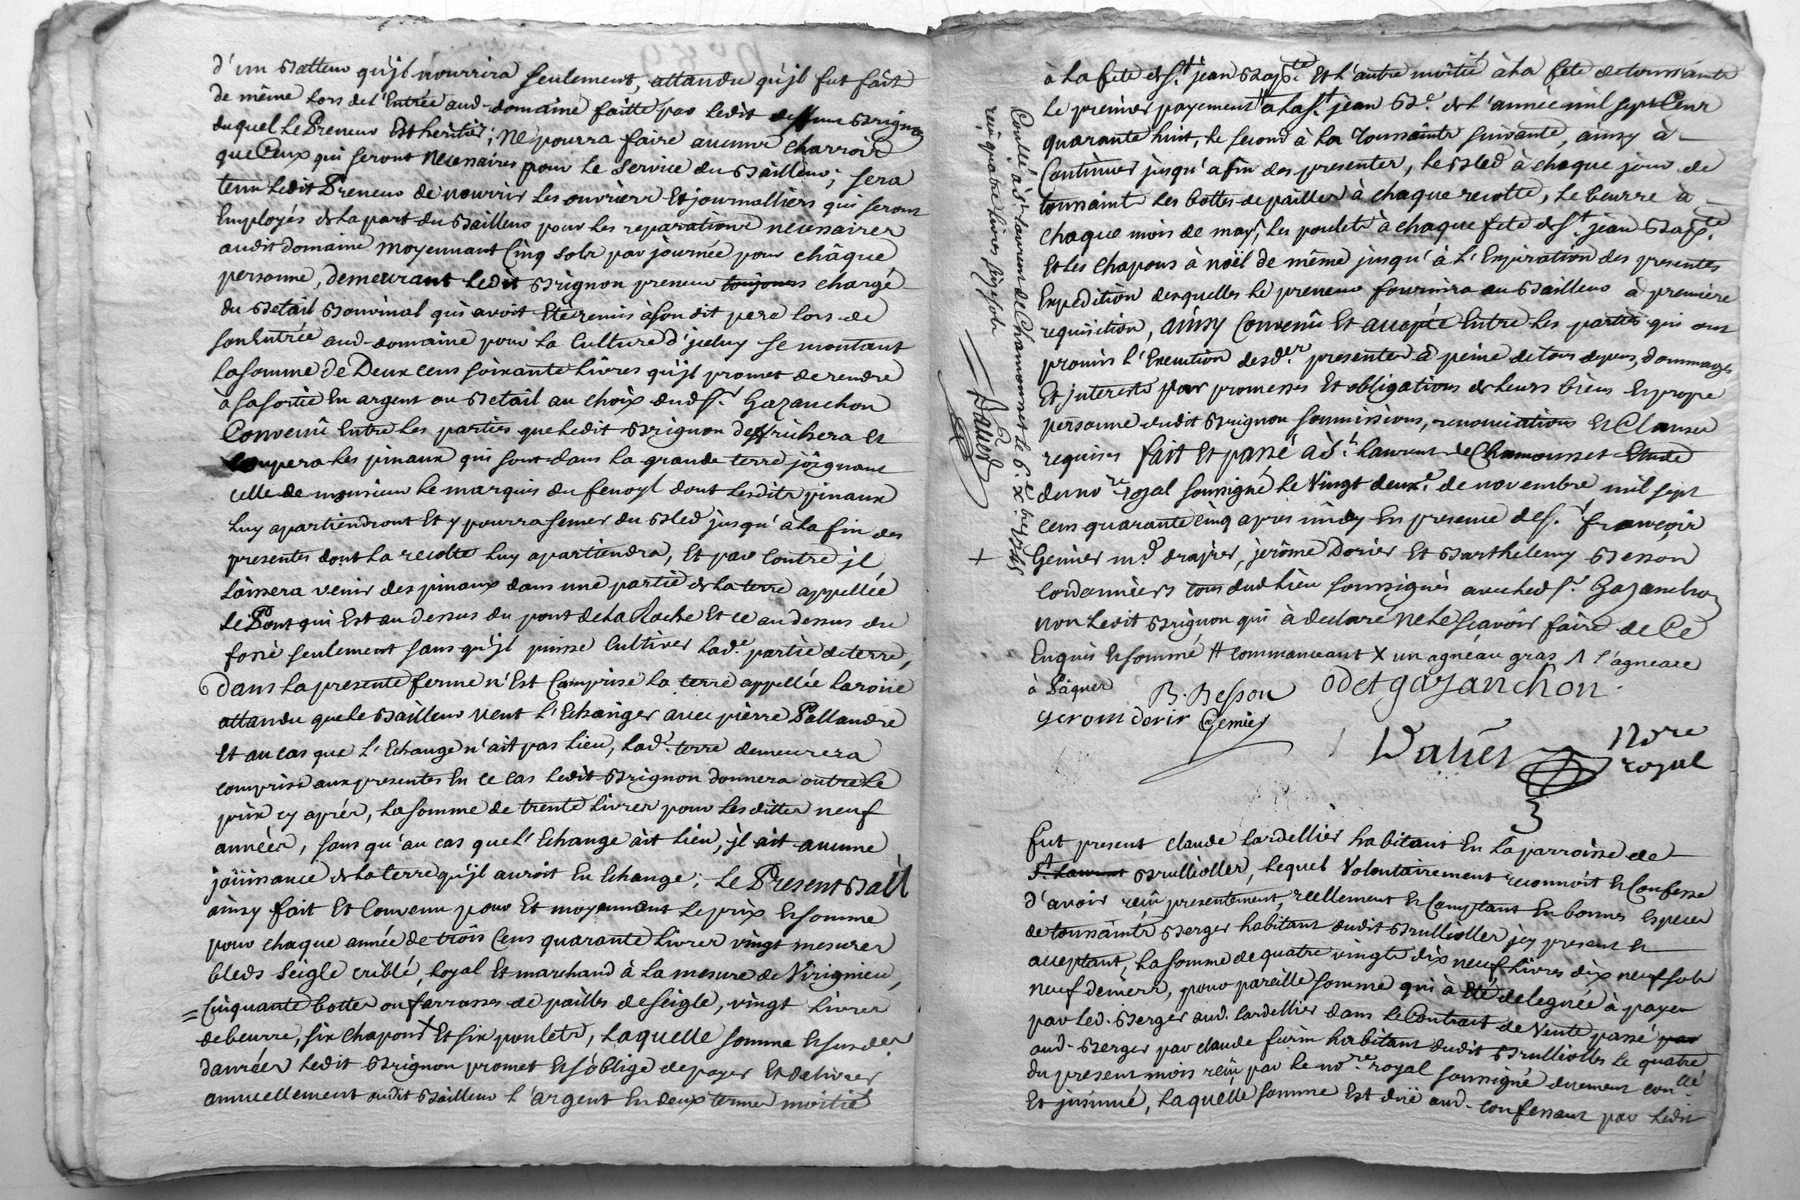 d'un Batteur qu'jl nourrira seulement, attandu qu'jl fut fait
de même lors de l'Entrée aud. domaine faitte par ledit deffunt Brignon
duquel le Preneur Est heritier; Ne pourra faire aucuns charrois
que Ceux qui seront necessaires pour le service du Bailleur; sera
tenu ledit Preneur de nourrir les ouvriers Et journalliers qui seront
Employés de la part du Bailleur pour les reparations necessaires
audit domaine moyennant Cinq sols par journée pour châque
personne, demeurant ledit Brignon preneur toujours chargé
du Betail Bouvinal qui avoit Eté remis à son dit pere lors de
son Entrée aud. domaine pour la Culture d'jceluy se montant
la somme de Deux cens soixante livres qu'jl promet de rendre
à sa sortie En argent ou Betail au choix dud. Sr. Gazanchon
Convenu Entre les parties que ledit Brignon deffrichera Et
coupera les pinaux qui sont dans la grande terre joignant
celle de monsieur le marquis du fenoyl dont lesdits pinaux
luy apartiendront Et y pourra semer du Bled jusqu'à la fin des
presentes dont la recolte luy apartiendra, Et par contre jl
laissera venir des pinaux dans une partie de la terre appellée
le Pont qui Est au dessus du pont de la Roche Et ce au dessus du
fossé seulement sans qu'jl puisse Cultiver lad. partie de terre,
dans la presente ferme n'Est Comprise la terre appellée la roüe
attandu que le Bailleur veut l'Echanger avec pierre Pallandre
Et au cas que l'Echange n'ait pas lieu, lad. terre demeurera
comprise aux presentes En ce cas ledit Brignon donnera outre le
prix cy après, la somme de trente livres pour lesdittes neuf
années, sans qu'au cas que l'Echange ait lieu, jl ait aucune
joüissance de la terre qu'jl auroit En Echange; Le Present Bail
ainsy fait Et Convenu pour Et moyennant le prix Et somme
pour chaque année de trois Cens quarante livres vingt mesures
bleds seigle criblé, loyal Et marchand à la mesure de Virignieu,
= Cinquante bottes ou farrasses de pailles de seigle, vingt livres
de beurre, six chapons X Et six poulets, laquelle somme Et susdes.
danrées ledit Brignon promet Et s'oblige de payer Et delivrer
annuellement audit Bailleur l'argent En deux termes moitié
à la fete de St. jean Bapte. Et l'autre moitié à la fete de toussaints
le premier payement # à la St. jean Bte. de l'année mil sept Cens
quarante huit, le second à la Toussaints suivante, ainsy à
Continuer jusqu'à fin des presentes, le Bled à chaque jour de
toussaint les bottes de pailles à chaque recolte, le beurre à
chaque mois de may, les poulets à chaque fete de St. jean Bapte.
Et les chapons à noël de même jusqu'à l'Expiration des presentes
Expedition desquelles le preneur fournira au Bailleur à premiere
requisition, ainsy Convenu Et accepté Entre les parties qui ont
promis l'Execution desd. presentes à peine de tous depens, dommages
Et interests par promesses Et obligations de leurs biens Et propre
personne dudit Brignon soumissions, renonciations Et Clauses
requises fait Et passé à St. Laurent de Chamousset Etude
du nore. royal soussigné le Vingt deuxe. de novembre mil sept
cens quarante Cinq apres midy En presence de Sr. françois
Gemier md. drapier, jerôme Dorier Et Barthelemy Besson
cordonniers tous dud. lieu soussignés avec led. Sr. Gazanchon
non ledit Brignon qui à declaré ne le sçavoir faire de Ce
Enquis Et sommé # commanceant X un agneau gras Λ l'agneau
à Pâques
B. Besson odet gazanchon.
gerom dorir Gemier
Nore
royal
Controllé à St. Laurent de Chamousset le 6e. Xbre. 1745
reçu quatre livres
+
fut present claude lardellier habitant En la parroisse de
St. Laurent Brullioller, lequel Volontairement reconnoit Et Confesse
d'avoir reçu presentement, reellement Et Comptant En bonnes Especes
de toussaints Berger habitant dudit Brullioller jcy present Et
acceptant, la somme de quatre vingts dix neuf livres dix neuf sols
neuf deniers, pour pareille somme qui à Eté deleguée à payer
par led. Berger aud. lardellier dans le Contrait de Vente passé par
aud. Berger par claude habitant dudit Brulliolles le quatre
du present mois reçu par le nore. royal soussigné duement conllé.
Et jnsinué, laquelle somme Est düe aud. confessant par ledit